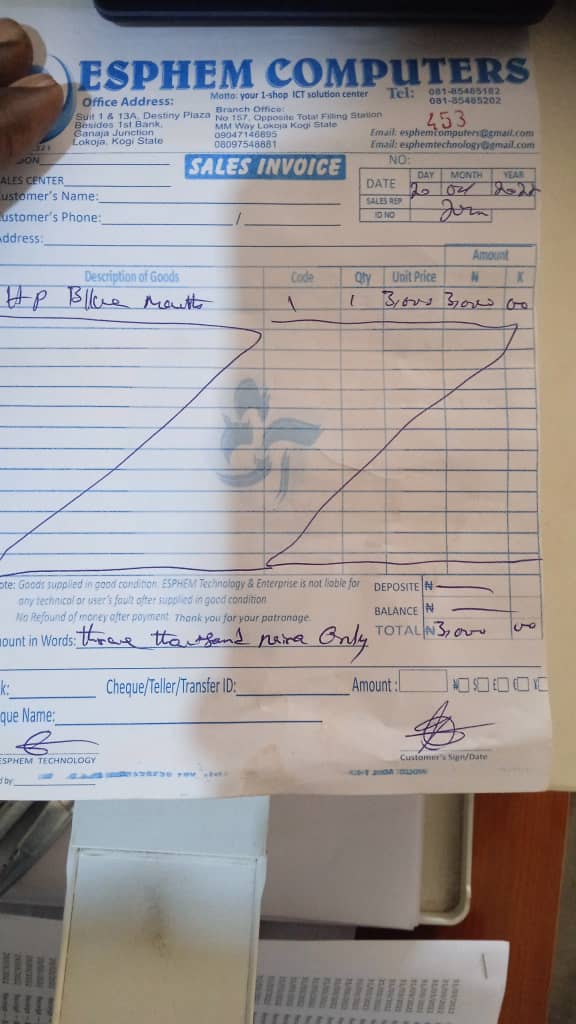 ESPHEM COMPUTERS
Motto: your 1-shop ICT solution center
Tel: 081-85485182
081-85485202
Office Address:
Suit 1 & 13A, Destiny Plaza
Besides 1st Bank,
Ganaja Junction
Lokoja, Kogi State
Branch Office:
No 157, Opposite Total Filling Station
MM Way Lokoja Kogi State
09047146895
08097548881
453
Email: esphemcomputers@gmail.com
Email: esphemtechnology@gmail.com
SALES INVOICE
NO:
DATE DAY MONTH YEAR
20 04 2022
SALES REP
ID NO
ALES CENTER
ustomer's Name:
ustomer's Phone: /
ddress:
Amount
Description of Goods Code Qty Unit Price N K
HP 1 1 3,000 3,000 00
ote: Goods supplied in good condition. ESPHEM Technology & Enterprise is not liable for
any technical or user's fault after supplied in good condition.
No Refound of money after payment. Thank you for your patronage.
DEPOSITE N
BALANCE N
TOTAL N 3,000 00
ount in Words: three thousand naira Only
k: Cheque/Teller/Transfer ID: Amount:
que Name:
ESPHEM TECHNOLOGY
Customer's Sign/Date
d by